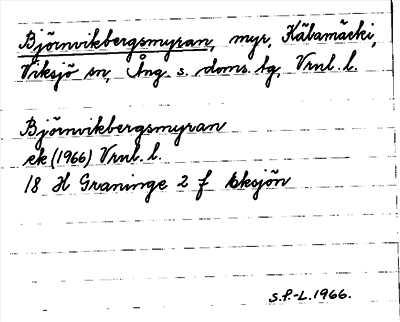 Björnvikbergsmyran, myr, Käbamäcki,
Viksjö sn, Ång. s. doms. tg, Vrnl. l.
Björnvikbergsmyran
ek (1966) Vrnl. l.
18 H Graninge 2 f Eksjön
S.F.-L. 1966.